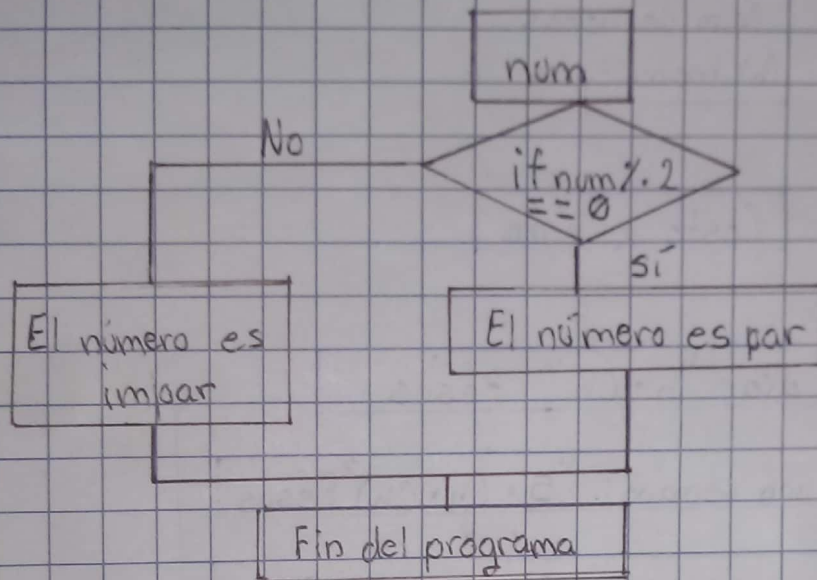 num
No
if num %. 2
== 0
sí
El número es
impar
El número es par
Fin del programa